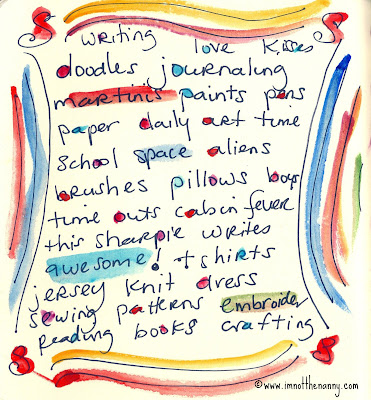 writing love kisses
doodles journaling
martinis paints pens
paper daily art time
school space aliens
brushes pillows boys
time outs cabin fever
this sharpie writes
awesome! t shirts
jersey knit dress
sewing patterns embroider
reading books crafting
©www.imnotthenanny.com